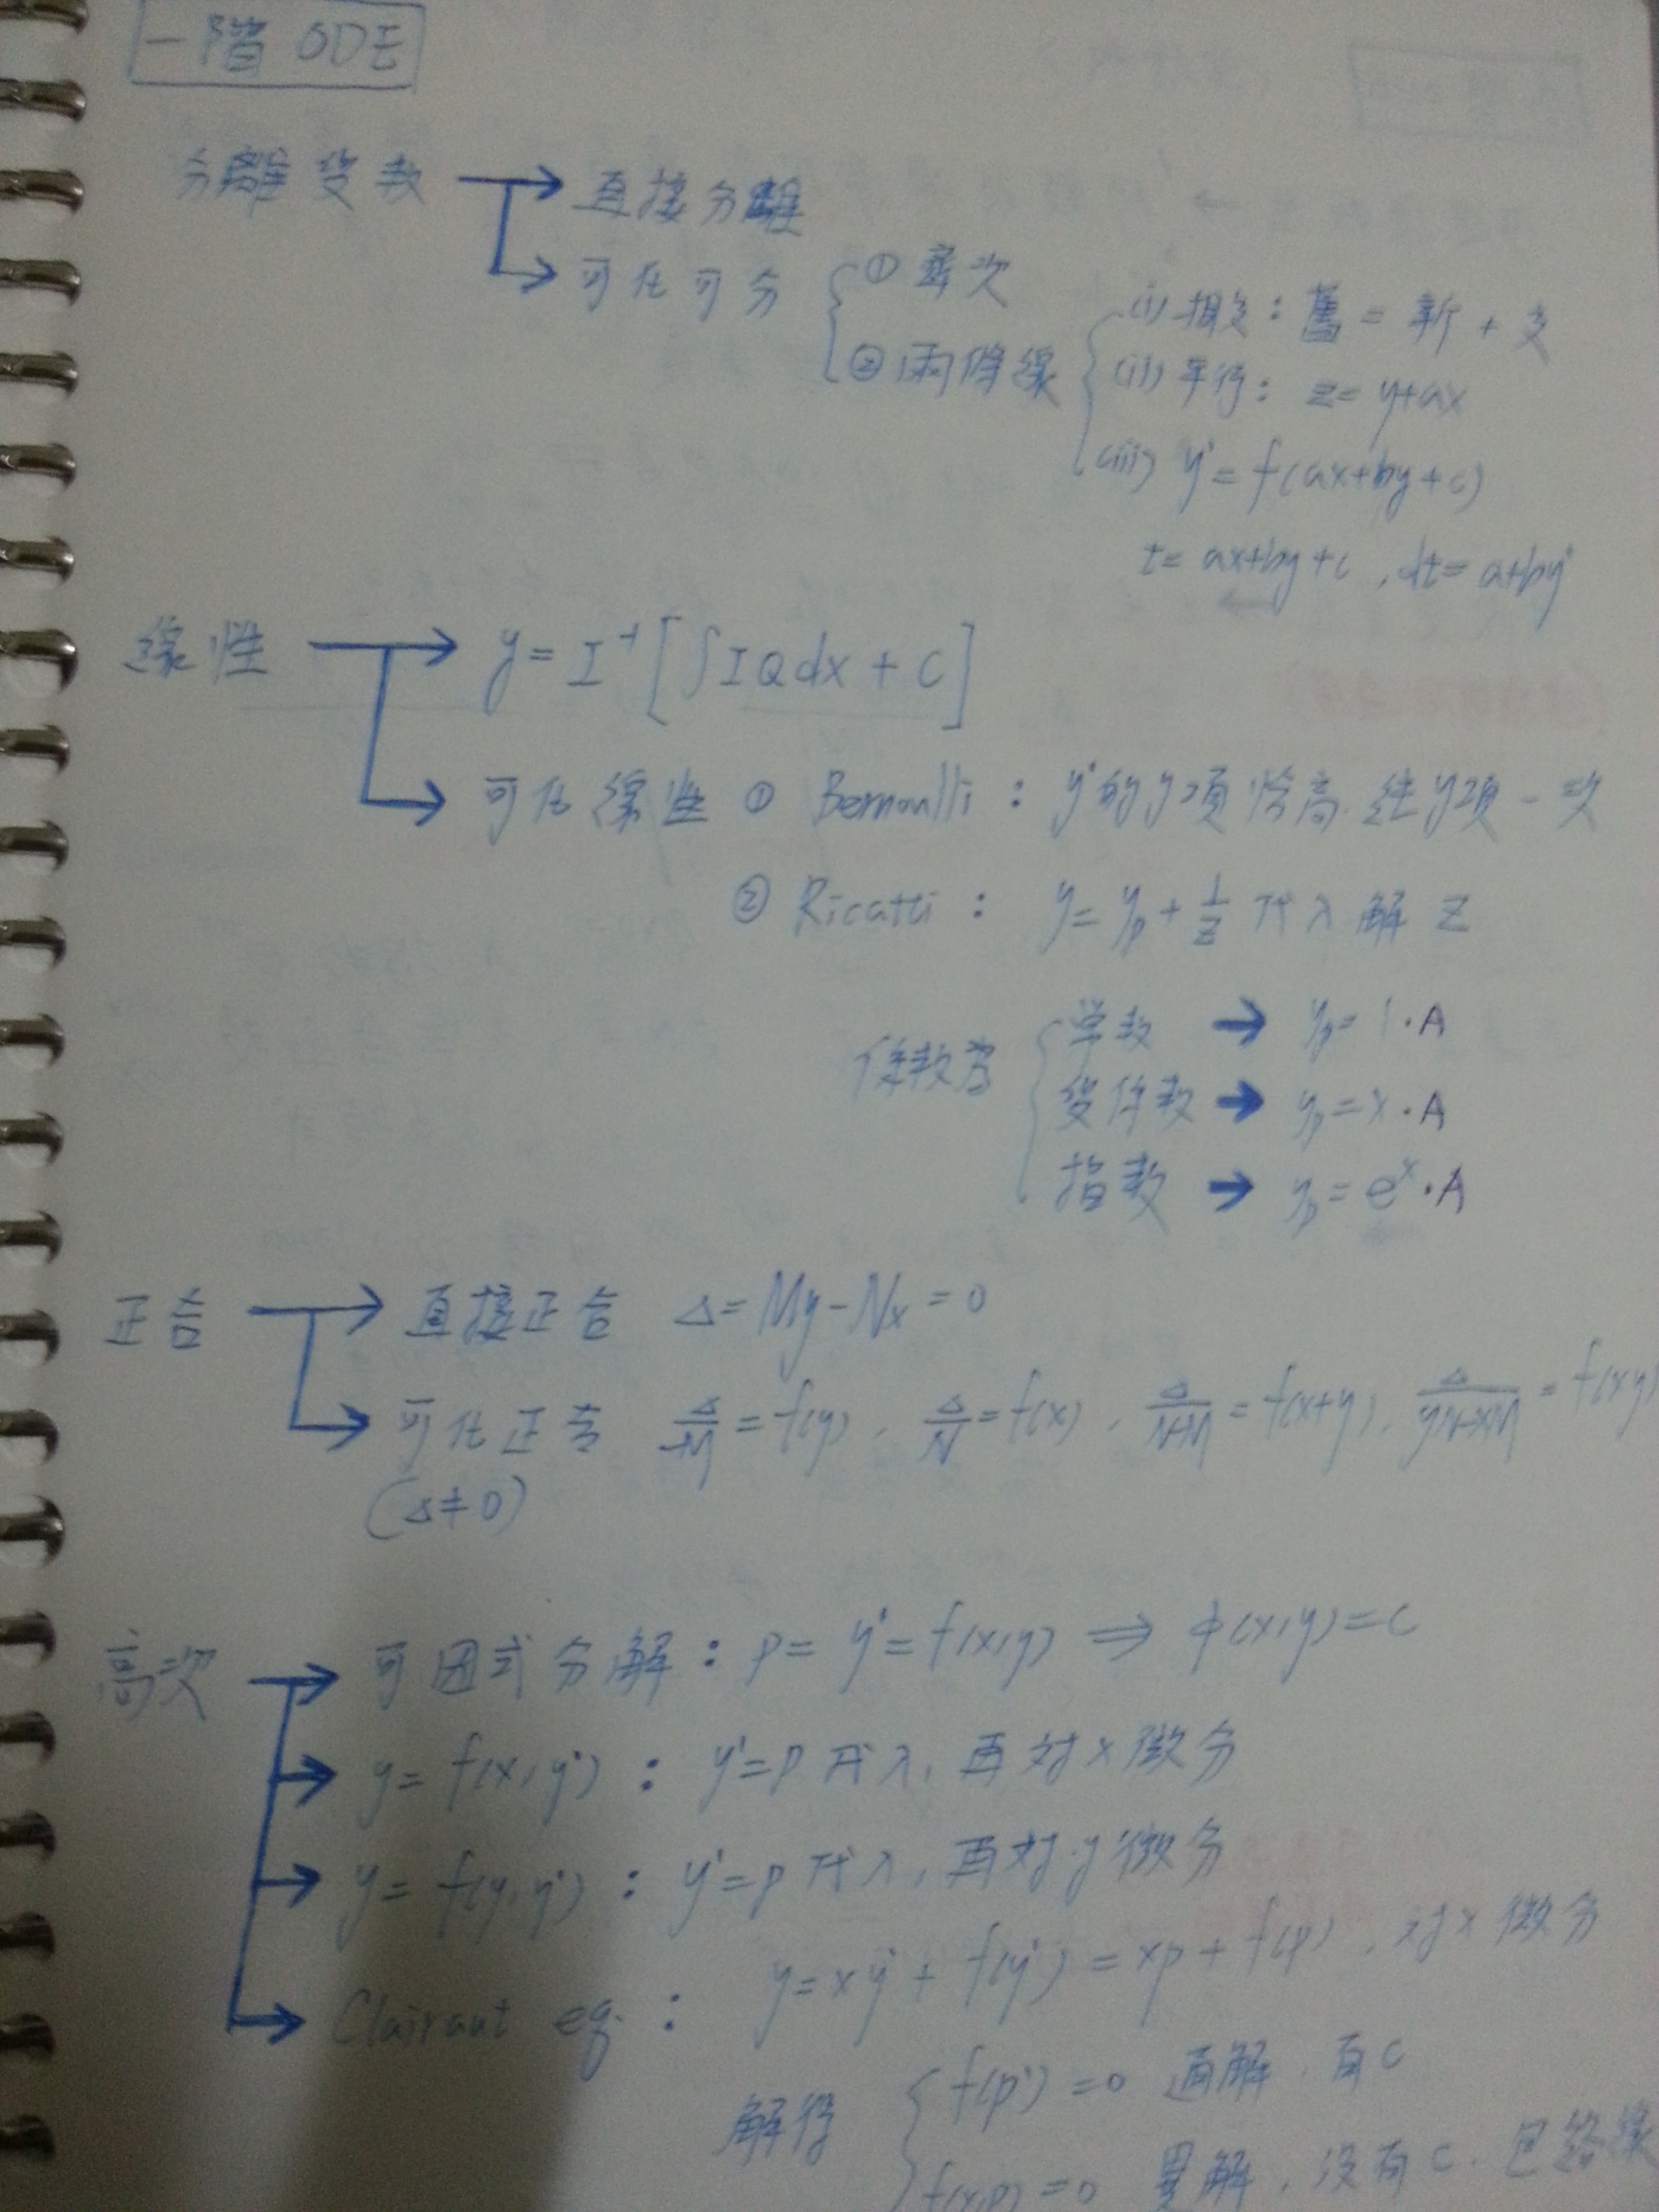 一階 ODE
分離變數 → 直接分離
→ 可化可分 ① 齊次
② 兩條線 (i) 相交：舊 = 新 + 交
(ii) 平行： z = y+ax
(iii) y' = f(ax+by+c)
t = ax+by+c , dt = a+by'
線性 → y = I⁻¹ [∫IQdx + C]
→ 可化線性 ① Bernoulli : y'的y項恰高 y項一次
② Ricatti : y = yp + 1/z 代入解 z
係數為 常數 → yp = 1·A
變係數 → yp = x·A
指數 → yp = eˣ·A
正合 → 直接正合 Δ = My - Nx = 0
→ 可化正合 Δ/-M = f(y), Δ/N = f(x), Δ/N-M = f(x+y), Δ/yN-xM = f(xy)
(Δ≠0)
高次 → 可因式分解 : p = y' = f(x,y) ⇒ φ(x,y) = c
→ y = f(x,y') : y'=p 代入, 再對x微分
→ y = f(y,y') : y'=p 代入, 再對y微分
→ Clairaut eq. : y = xy' + f(y') = xp + f(p), 對x微分
解得 f(p') = 0 通解, 有c
f(x,p) = 0 異解, 沒有c. 包絡線